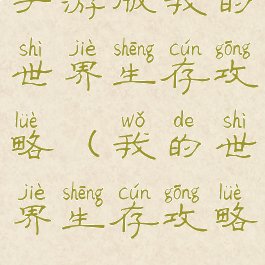 游版我的
shì jiè shēng cún gōng
世界生存攻
lüè wǒ de shì
略（我的世
jiè shēng cún gōng lüè
界生存攻略